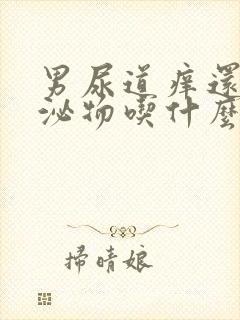 男尿道痒還
泌物喫什麽
掃晴娘